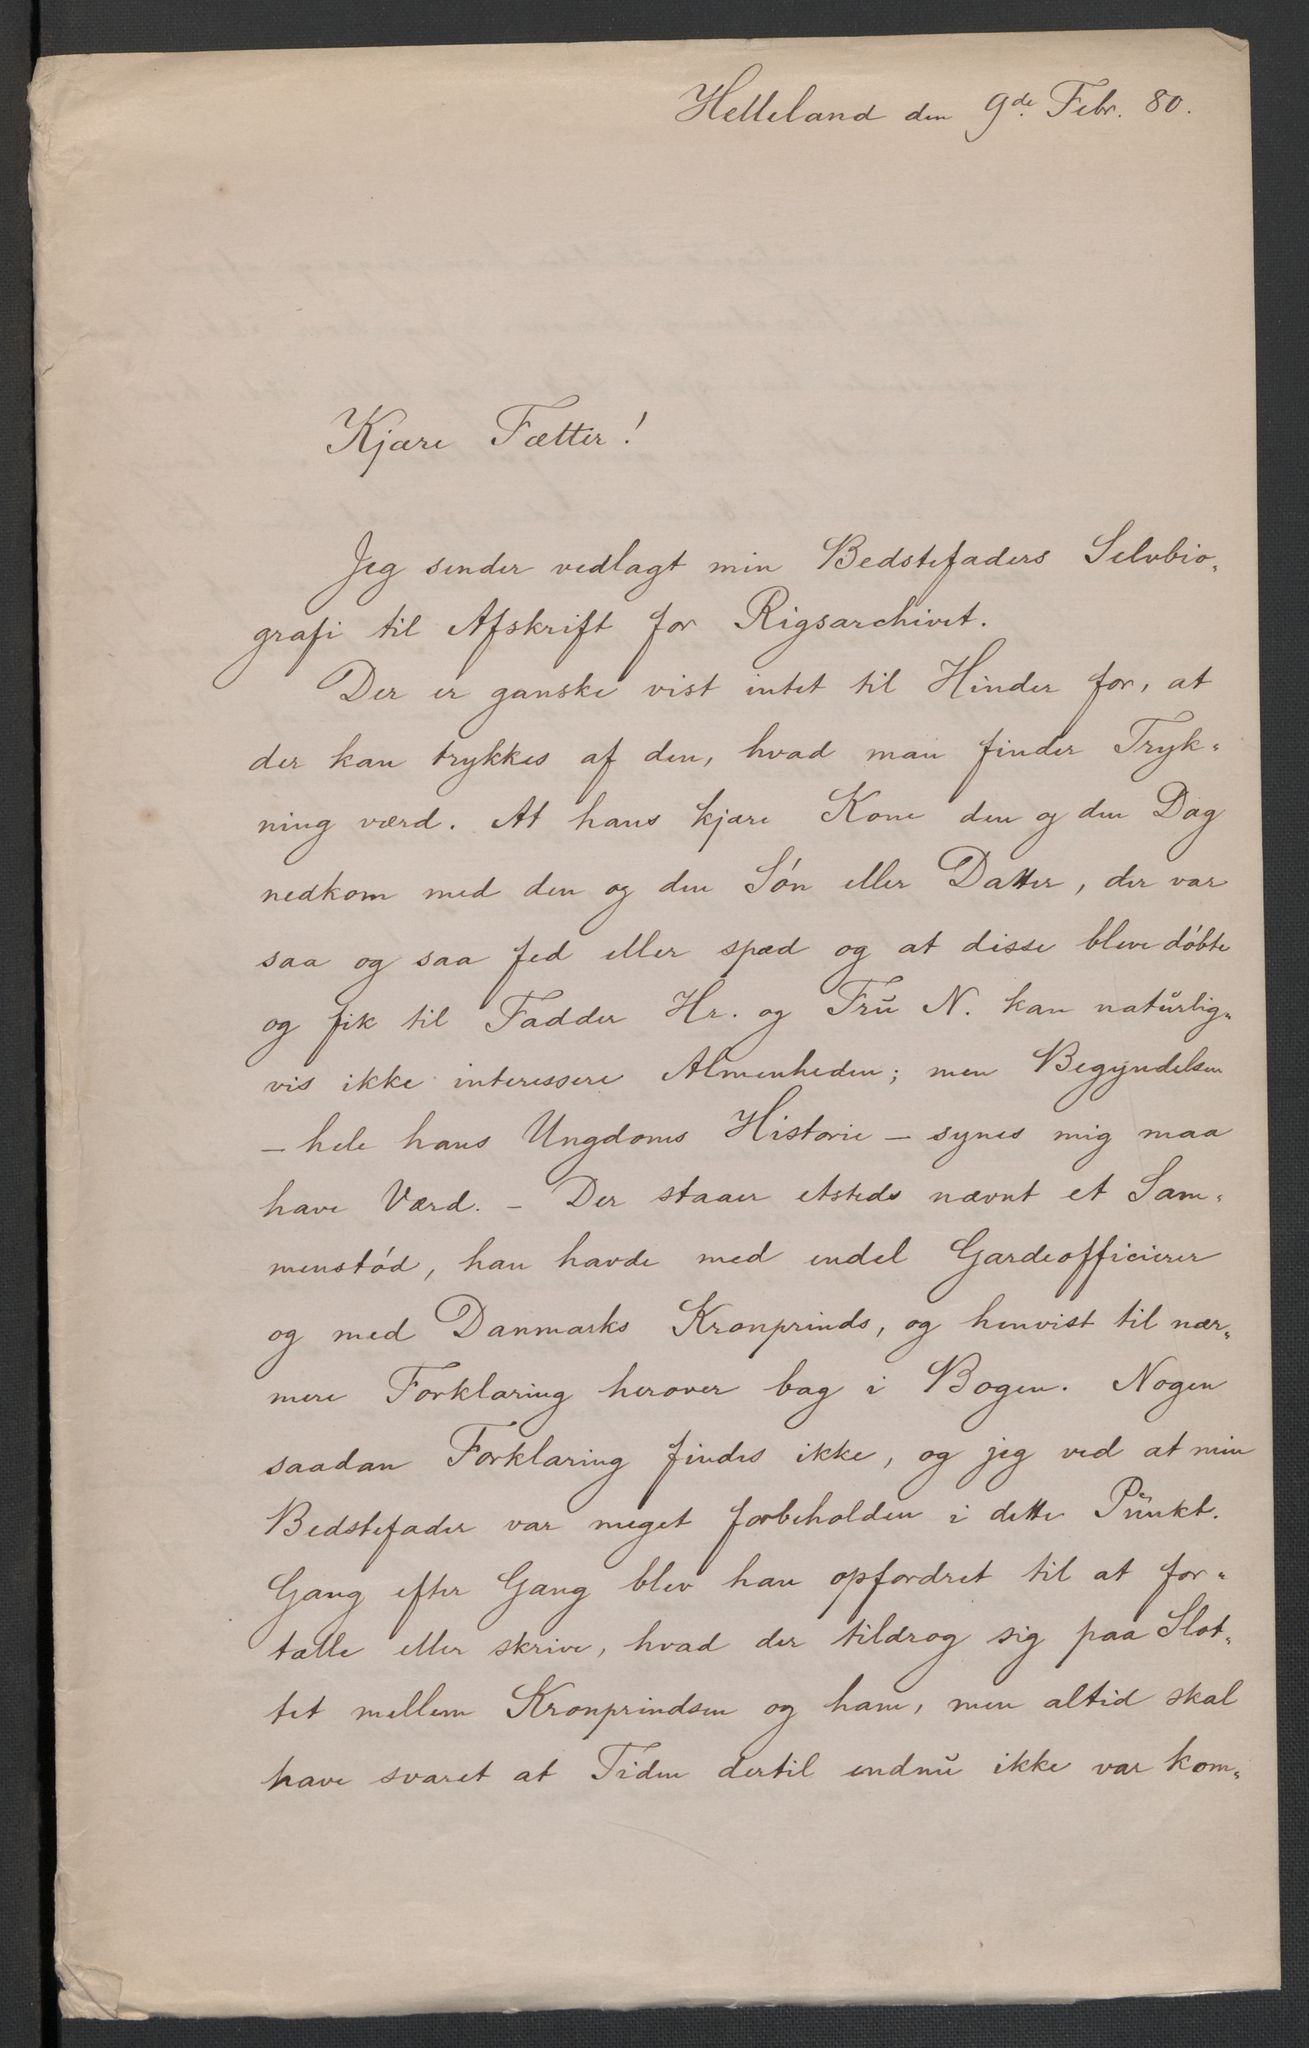 Helleland den 9de Febr. 80.
Kjære Fætter!
Jeg sender vedlagt min Bedstefaders Selvbio-
grafi til Afskrift for Rigsarchivet.
Der er ganske vist intet til Hinder for, at
der kan trykkes af den, hvad man finder Tryk-
ning værd. At hans kjære Kone den og den Dag
nedkom med den og den Søn eller Datter, der var
saa og saa fed eller spæd og at disse bleve døbte
og fik til Fadder Hr. og Fru N. kan naturlig-
vis ikke interessere Almenheden; men Begyndelsen
- hele hans Ungdoms Historie - synes mig maa
have Værd. - Der staaer etsteds nævnt et Sam-
menstød, han havde med endel Gardeofficierer
og med Danmarks Kronprinds, og henvist til nær-
mere Forklaring herover bag i Bogen. Nogen
saadan Forklaring findes ikke, og jeg ved at min
Bedstefader var meget forbeholden i dette Punkt.
Gang efter Gang blev han opfordret til at for-
tælle eller skrive, hvad der tildrog sig paa Slot-
tet mellem Kronprindsen og ham, men altid skal
have svaret at Tiden dertil endnu ikke var kom-